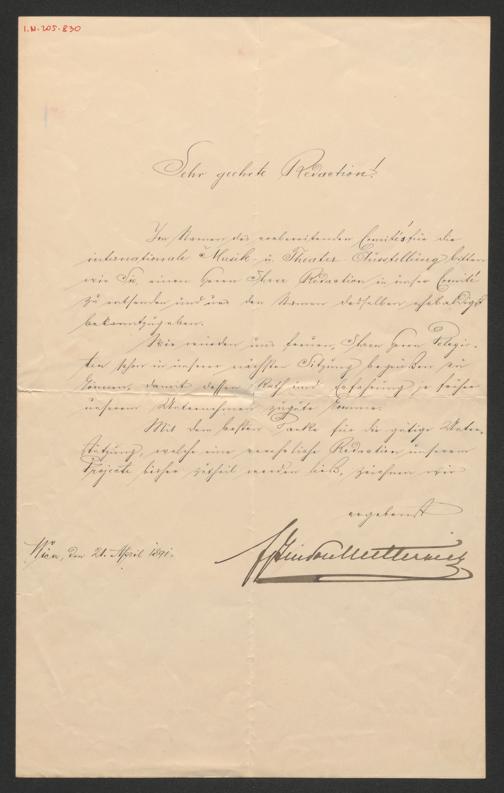 I.N. 205.830
Sehr geehrte Redaction!
Im Namen des vorbereitenden Comités für die
internationale Musik- u. Theater Ausstellung bitten
wir Sie, einen Herrn Ihrer Redaction in unser Comité
zu entsenden und uns den Namen desselben ehebaldigst
bekanntzugeben.
Wir würden uns freuen, Ihren Herrn Delegir-
ten schon in unserer nächsten Sitzung begrüßen zu
können, damit dessen Rath und Erfahrung je früher
unserem Unternehmen zugute komme.
Mit dem besten Danke für die gütige Unter-
stützung, welche eine verehrliche Redaction unserem
Projecte bisher zutheil werden ließ, zeichnen wir
ergebenst
Wien, den 21. April 1891.
Metternich